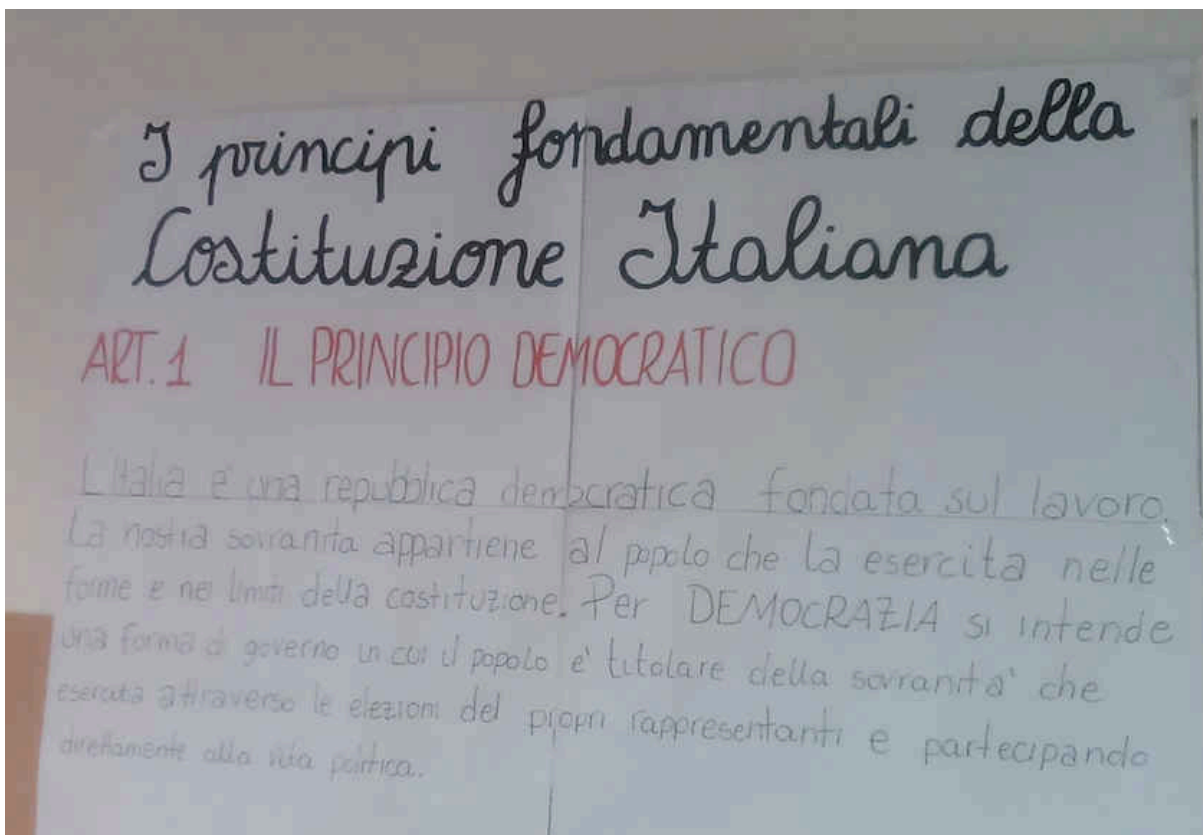 I principi fondamentali della
Costituzione Italiana
ART. 1 IL PRINCIPIO DEMOCRATICO
L'Italia e' una repubblica democratica fondata sul lavoro.
La nostra sovranita appartiene al popolo che la esercita nelle
forme e nei limiti della costituzione. Per DEMOCRAZIA si intende
una forma di governo in cui il popolo e' titolare della sovranita' che
esercita attraverso le elezioni dei propri rappresentanti e partecipando
direttamente alla vita politica.